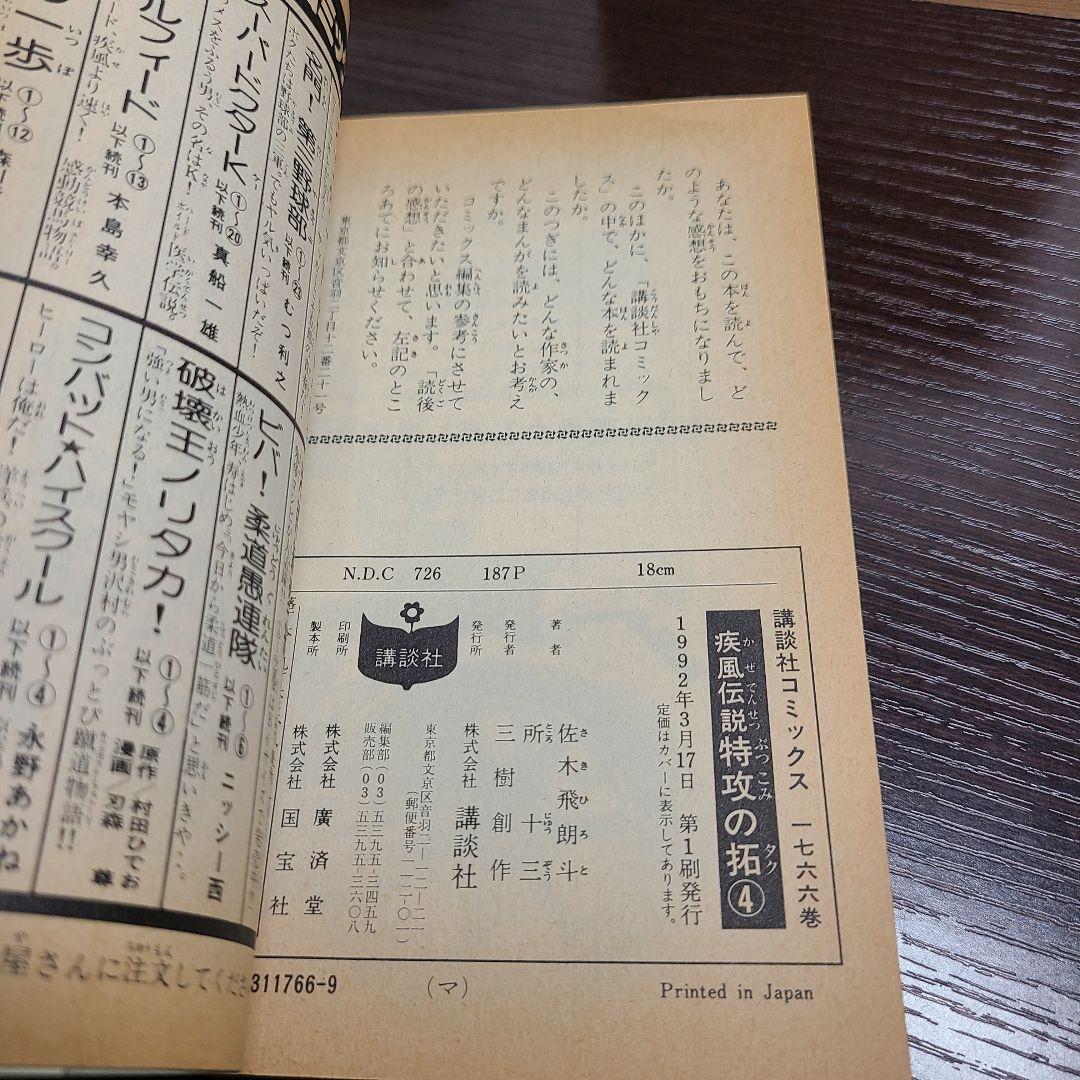 あなたは、この本を読んで、ど
のような感想をおもちになりまし
たか。
このほかに、「講談社コミック
ス」の中で、どんな本を読まれま
したか。
このつぎには、どんな作家の、
どんなまんがを読みたいとお考え
ですか。
コミックス編集の参考にさせて
いただきたいと思います。「読後
の感想」と合わせて、左記のとこ
ろあてにお知らせください。
東京都文京区音羽二丁目十二番二十一号
N.D.C 726 187P 18cm
講談社コミックス 一七六六巻
疾風伝説特攻の拓④
かぜでんせつぶっこみ タク
1992年3月17日 第1刷発行
定価はカバーに表示してあります。
著者 佐木飛朗斗
さきひろと
所十三
ところじゅうぞう
発行者 三樹創作
発行所 株式会社 講談社
東京都文京区音羽二―一二―二一
(郵便番号一一二―〇一)
編集部(03)五三九五―三四五九
販売部(03)五三九五―三六〇八
講談社
印刷所 株式会社 廣済堂
製本所 株式会社 国宝社
311766-9
(マ)
Printed in Japan
第三野球部 ①~㉓
以下続刊 むつ利之
スーパードクターK ①~⑳
以下続刊 真船一雄
メスをふるう男、その名はK!
ルフィード ①~⑬
以下続刊 本島幸久
疾風より速く!
一歩 ①~⑫
以下続刊
ビバ!柔道愚連隊 ①~⑥
以下続刊 ニッシー西
今日から柔道一筋だ」と思いきや‥
破壊王ノリタカ! ①~④
以下続刊 原作/村田ひでお
漫画/刃森尊
「強い男になる!」モヤシ男沢村のぶっとび蹴道物語!!
コンバット★ハイスクール ①~④
以下続刊 永野あかね
ヒーローは俺だ!
屋さんに注文してくださ